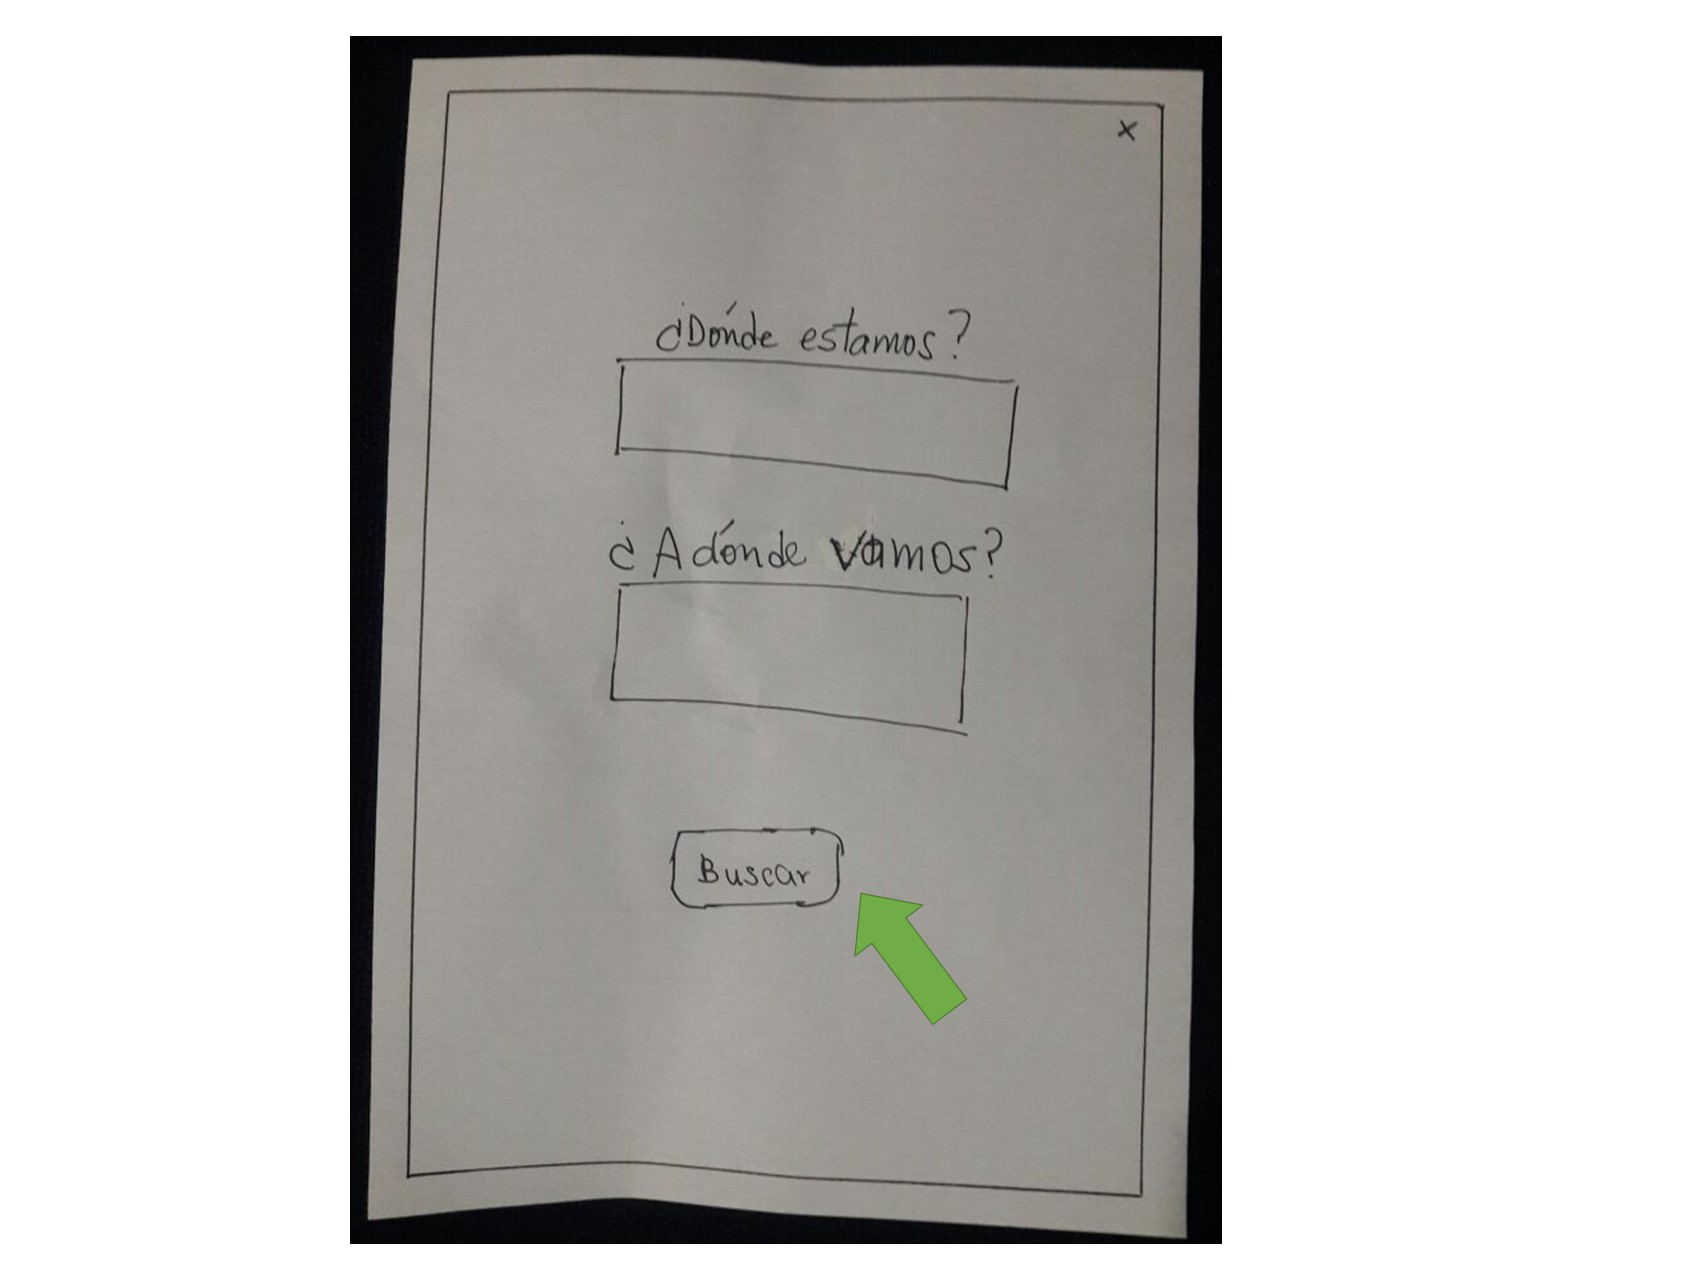 x
¿Dónde estamos?
¿Adónde vamos?
Buscar